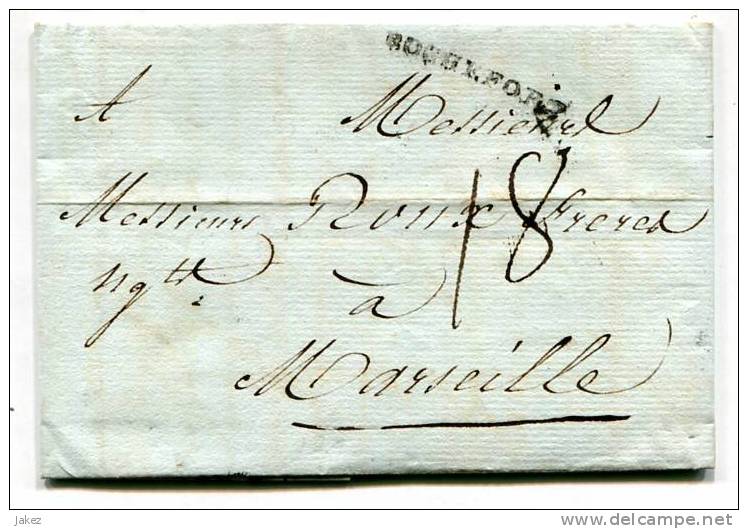 ROCHEFORT
A Messieurs
Messieurs Roux Freres
18
Ngtt
à
Marseille
jakez
www.delcampe.net